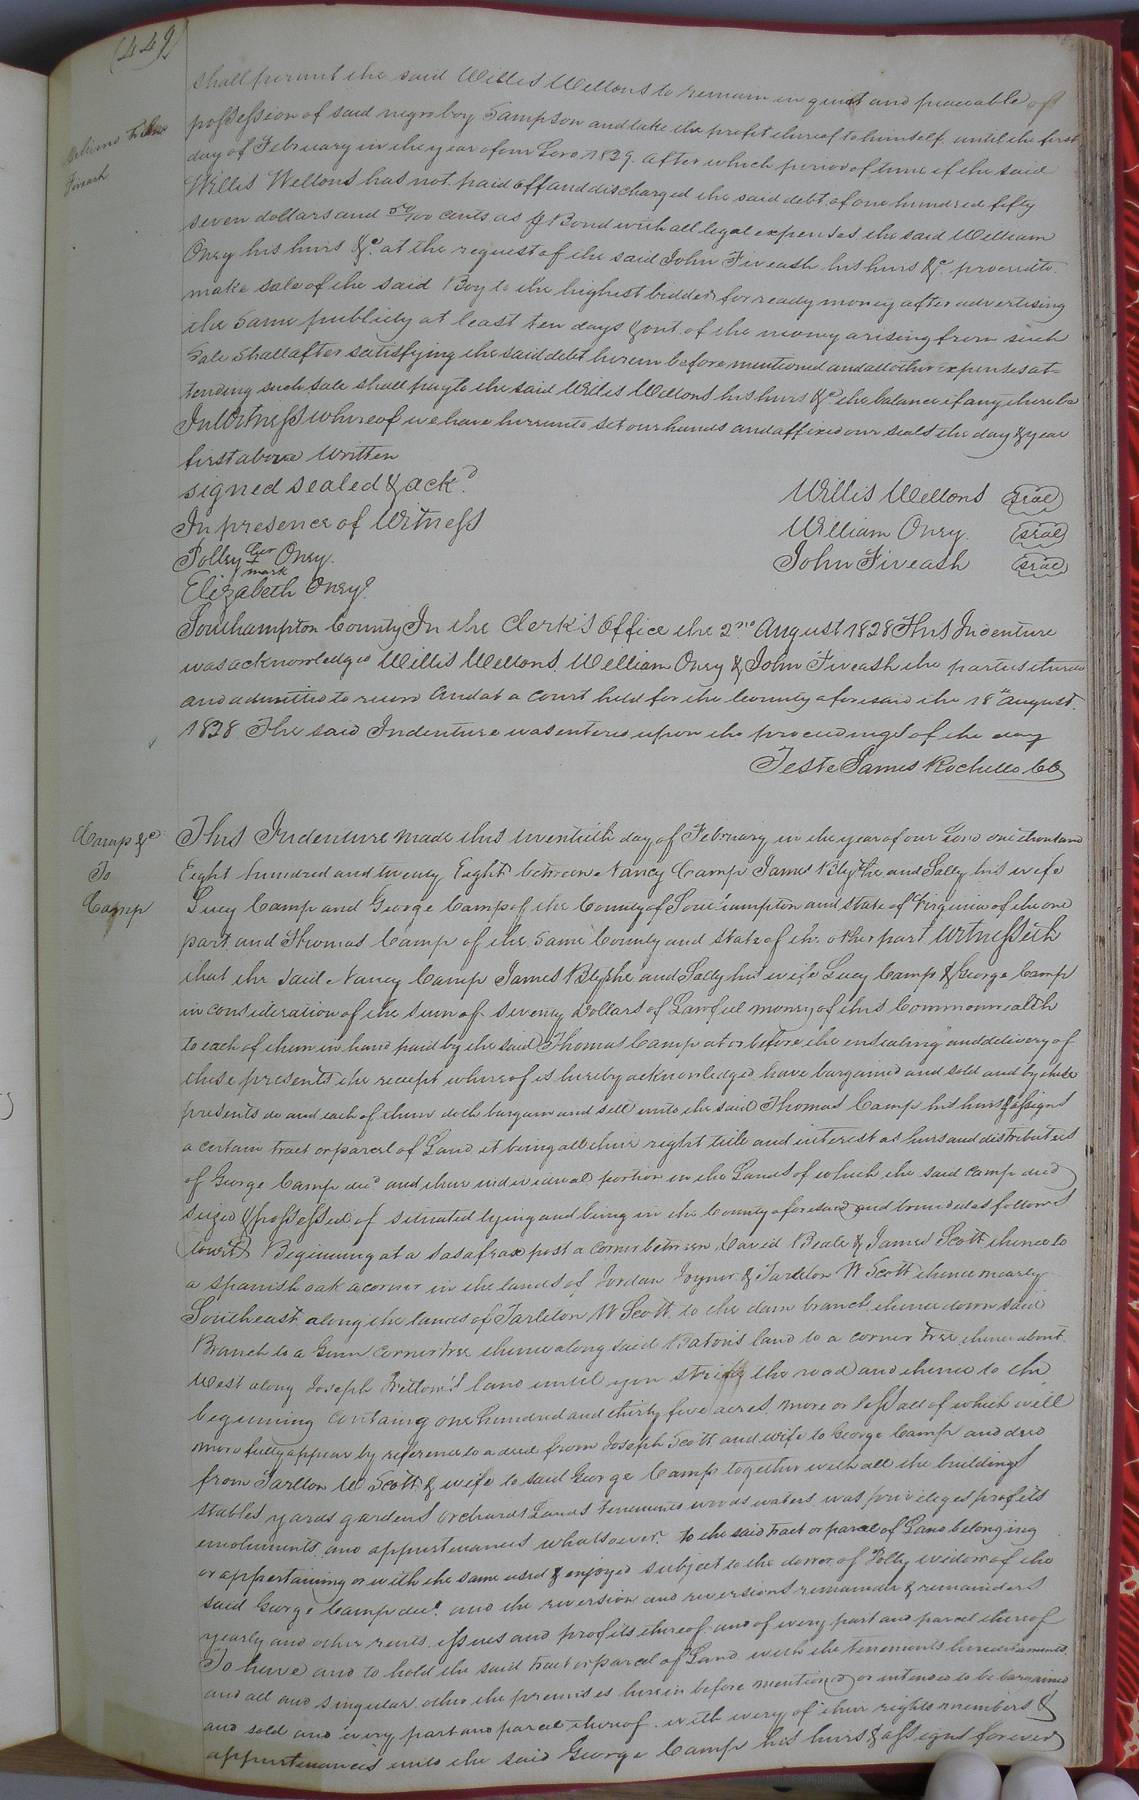 (442)
shall permit the said Willis Wellons to remain in quiet and peaceable of
possession of said negro boy Sampson and take the profit thereof to himself until the first
day of February in the year of our Lord 1829. after which period of time if the said
Willis Wellons has not paid off and discharged the said debt of one hundred fifty
seven dollars and 50/100 cents as p Bond with all legal expenses the said William
Oney his hurs &c. at the request of the said John Fiveash his hurs &c. proceed to
make sale of the said Boy to the highest bidder for ready money after advertising
the same publicly at least ten days & out of the money arising from such
Sale shall after satisfying the said debt herein before mentioned and all other expenses at-
tending such sale shall pay to the said Willis Wellons his hurs &c the balance if any there be
In Witness whereof we have hereunto set our hands and affixed our seals the day & year
first above written
signed sealed & ackd.
Willis Wellons (seal)
In presence of Witness
William Oney. (seal)
Polley her + mark Oney.
John Fiveash (seal)
Elizabeth Oney
Southampton County In the Clerk's Office the 2nd August 1828 This Indenture
was acknowledged Willis Wellons, William Oney & John Fiveash the parties thereto
and admitted to record And at a court held for the County aforesaid the 18th August.
1828 The said Indenture was entered upon the proceedings of the day
Teste James Rochelle CC
Camp &c
To
Camp
This Indenture made this twentieth day of February in the year of our Lord one thousand
Eight hundred and twenty Eight between Nancy Camp James Blythe and Sally his wife
Lucy Camp and George Camp of the County of Southampton and state of Virginia of the one
part and Thomas Camp of the same County and State of the other part Witnesseth
that the said Nancy Camp James Blythe and Sally his wife Lucy Camp & George Camp
in consideration of the sum of seventy dollars of Lawful money of this Commonwealth
to each of them in hand paid by the said Thomas Camp at or before the ensealing and delivery of
these presents the receipt whereof is hereby acknowledged have bargained and sold and by these
presents do and each of them doth bargain and sell unto the said Thomas Camp his hurs & assigns
a certain tract or parcel of Land it being all their right title and interest as hurs and distributees
of George Camp decd and their individual portion in the Lands of which the said Camp died
seized & possessed of situated lying and being in the County aforesaid and bounded as follows
(towit) Beginning at a sasafrax post a corner between David Beale & James Scott thence to
a spanish oak a corner in the lands of Jordan Joyner & Tarleton W Scott thence nearly
Southeast along the lands of Tarleton W Scott to the dam branch thence down said
Branch to a Gum corner tree thence along said Baton's land to a corner tree thence about
west along Joseph land until you strike the road and thence to the
beginning containg one hundred and thirty five acres more or less all of which will
more fully appear by reference to a deed from Joseph Scott and wife to George Camp and deed
from Tarlton W Scott & wife to said George Camp together with all the buildings
stables yards gardens orchards Lands tenements woods waters was priveleges profits
emoluments and appurtenances whatsoever to the said tract or parcel of Land belonging
or appertaining or with the same used & enjoyed subject to the dower of Polly widow of the
said George Camp decd. and the reversion and reversions remainder & remainders
yearly and other rents issues and profits thereof and of every part and parcel thereof
To have and to hold the said tract or parcel of Land with the tenements hereditaments
and all and singular other the premises herein before mentioned or intended to be bargained
and sold and every part and parcel thereof with every of their rights members &
appurtenances unto the said George Camp his hurs & assigns forever